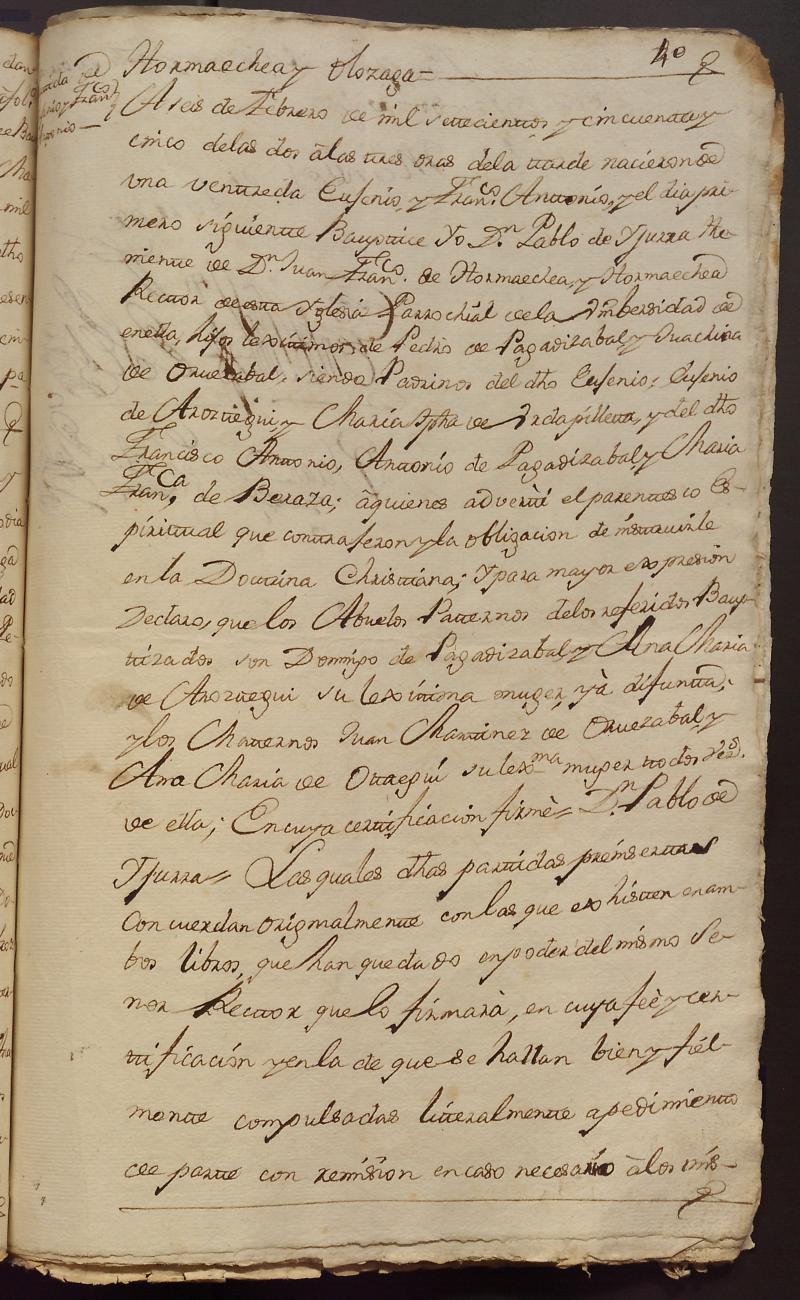 4º
Hormaechea y Olozaga=
A seis de Febrero de mil settecienttos y cinquentta y
cinco de las dos â las ttres oras de la ttarde nacieron de
una venttreda Eusenio, y Franco. Anttonio, y el dia pri-
mero siguientte Bapttice Yo Dn. Pablo de Yjurra The-
nientte de Dn. Juan Franco. de Hormaechea, y Hormaechea
Rector de estta Yglesia Parrochial de la Vnibersidad de
en ella, hijos lexittimos de Pedro de Pagadizabal y Juachina
de Oruezabal, siendo Padrinos del dho Eusenio, Eusenio
de Arozttegui, y Maria Jpha de Vrdapilletta, y del dho
Francisco Anttonio, Anttonio de Pagadizabal y Maria
Franca. de Beraza; â quienes adverttí el parenttesco Es-
piritual que conttrajeron y la obligacion de insttruirle
en la Docttrina Christtiana; Y para mayor expresion
Declaro, que los Abuelos Patternos de los referidos Baup-
ttizados son Domingo de Pagadizabal y Ana Maria
de Arozttegui su lexittima muger, yà difuntta;
y los Matternos Juan Marttinez de Oruezabal y
Ana Maria de Ottaegui su lexma muger ttodos Vezs.
de ella; En cuya certtificacion firmè= Dn. Pablo de
Yjurra= Las quales dhas parttidas preinserttas
Concuerdan originalmentte con las que exhistten en am-
bos libros, que han quedado en poder del mismo Se-
ñor Recttor que lo firmarà, en cuya feè y cer-
ttificación y en la de que se hallan bien y fiel-
mentte compulsadas litteralmentte a pedimientto
de partte con remision en caso necesario â los mis-